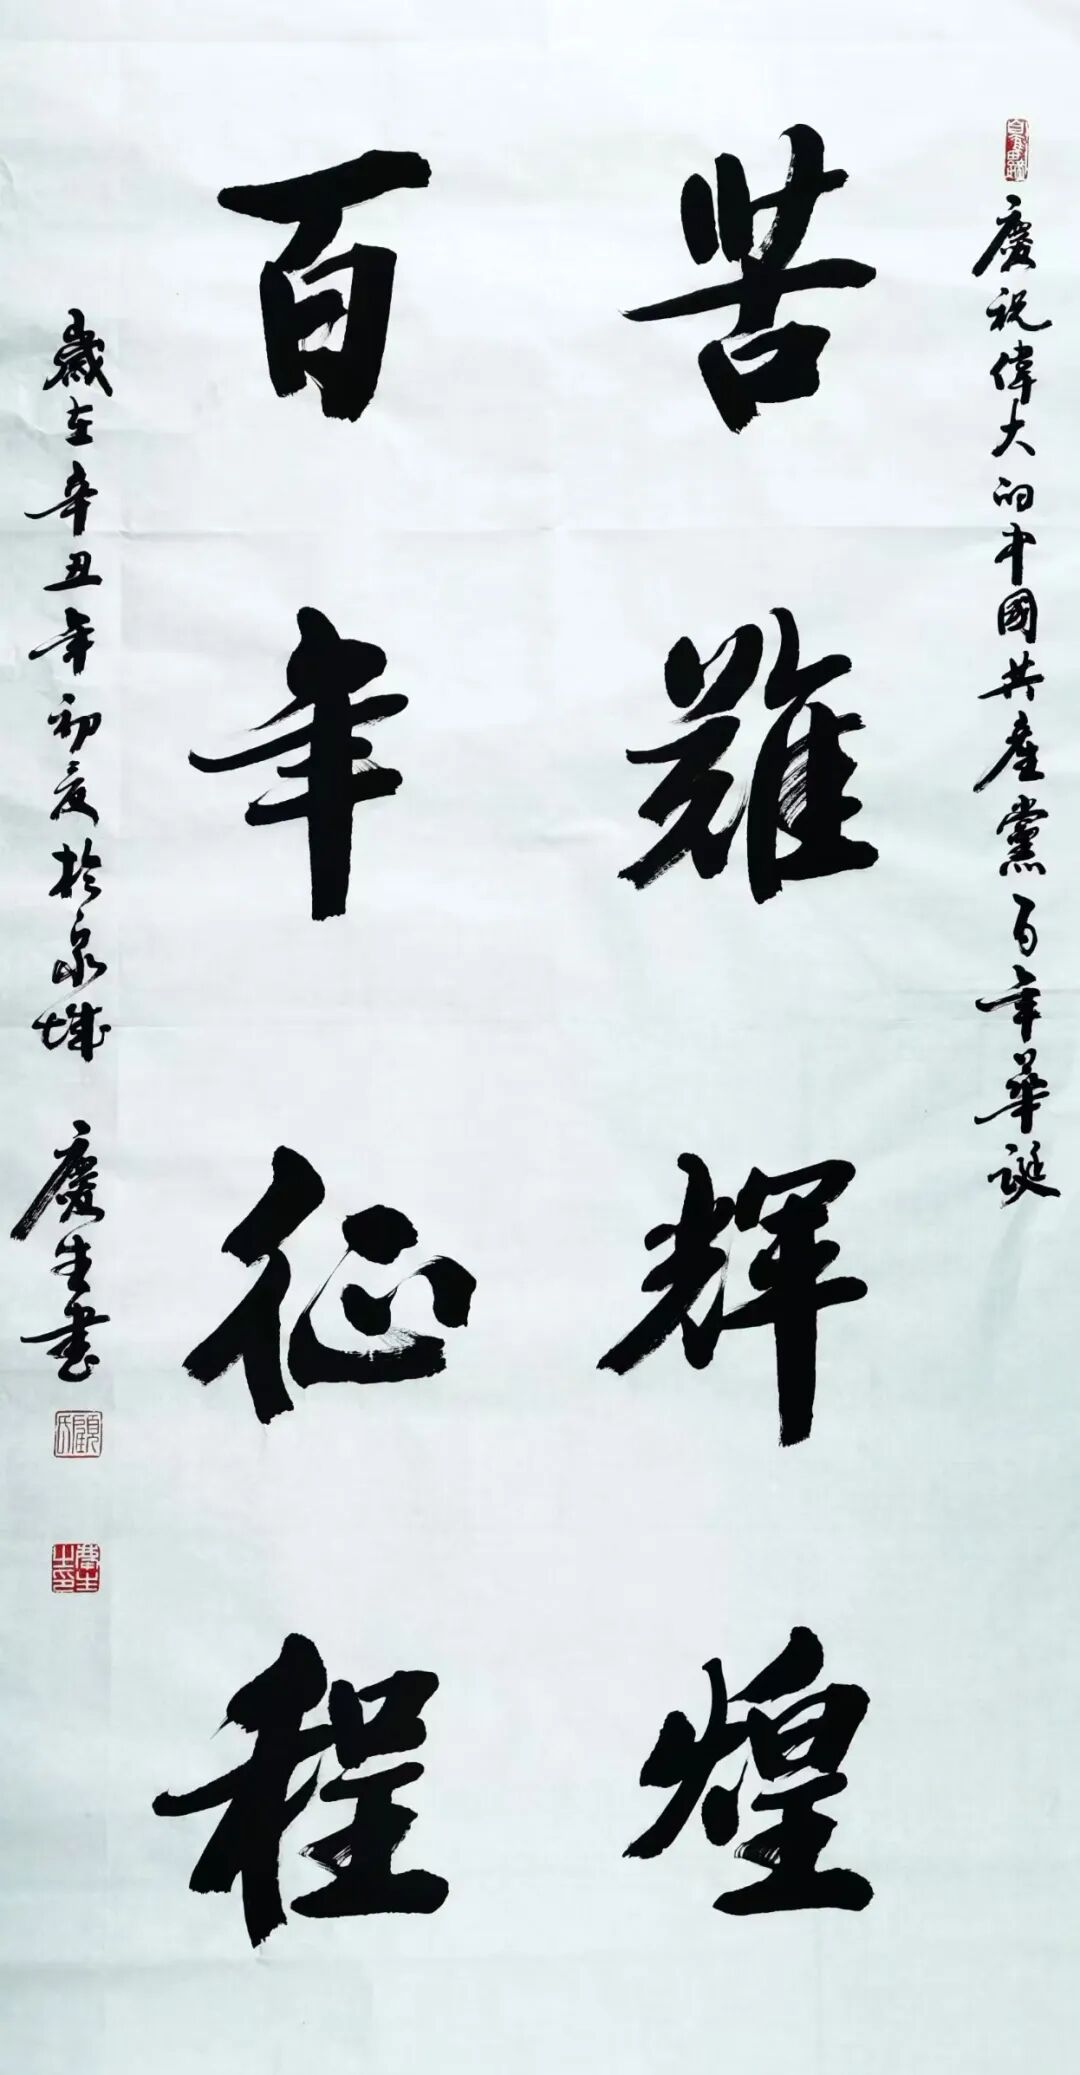 慶祝偉大的中國共産黨百年華誕
苦難輝煌
百年征程
歲在辛丑年初夏於泉城 慶生書
顧氏
慶生之印